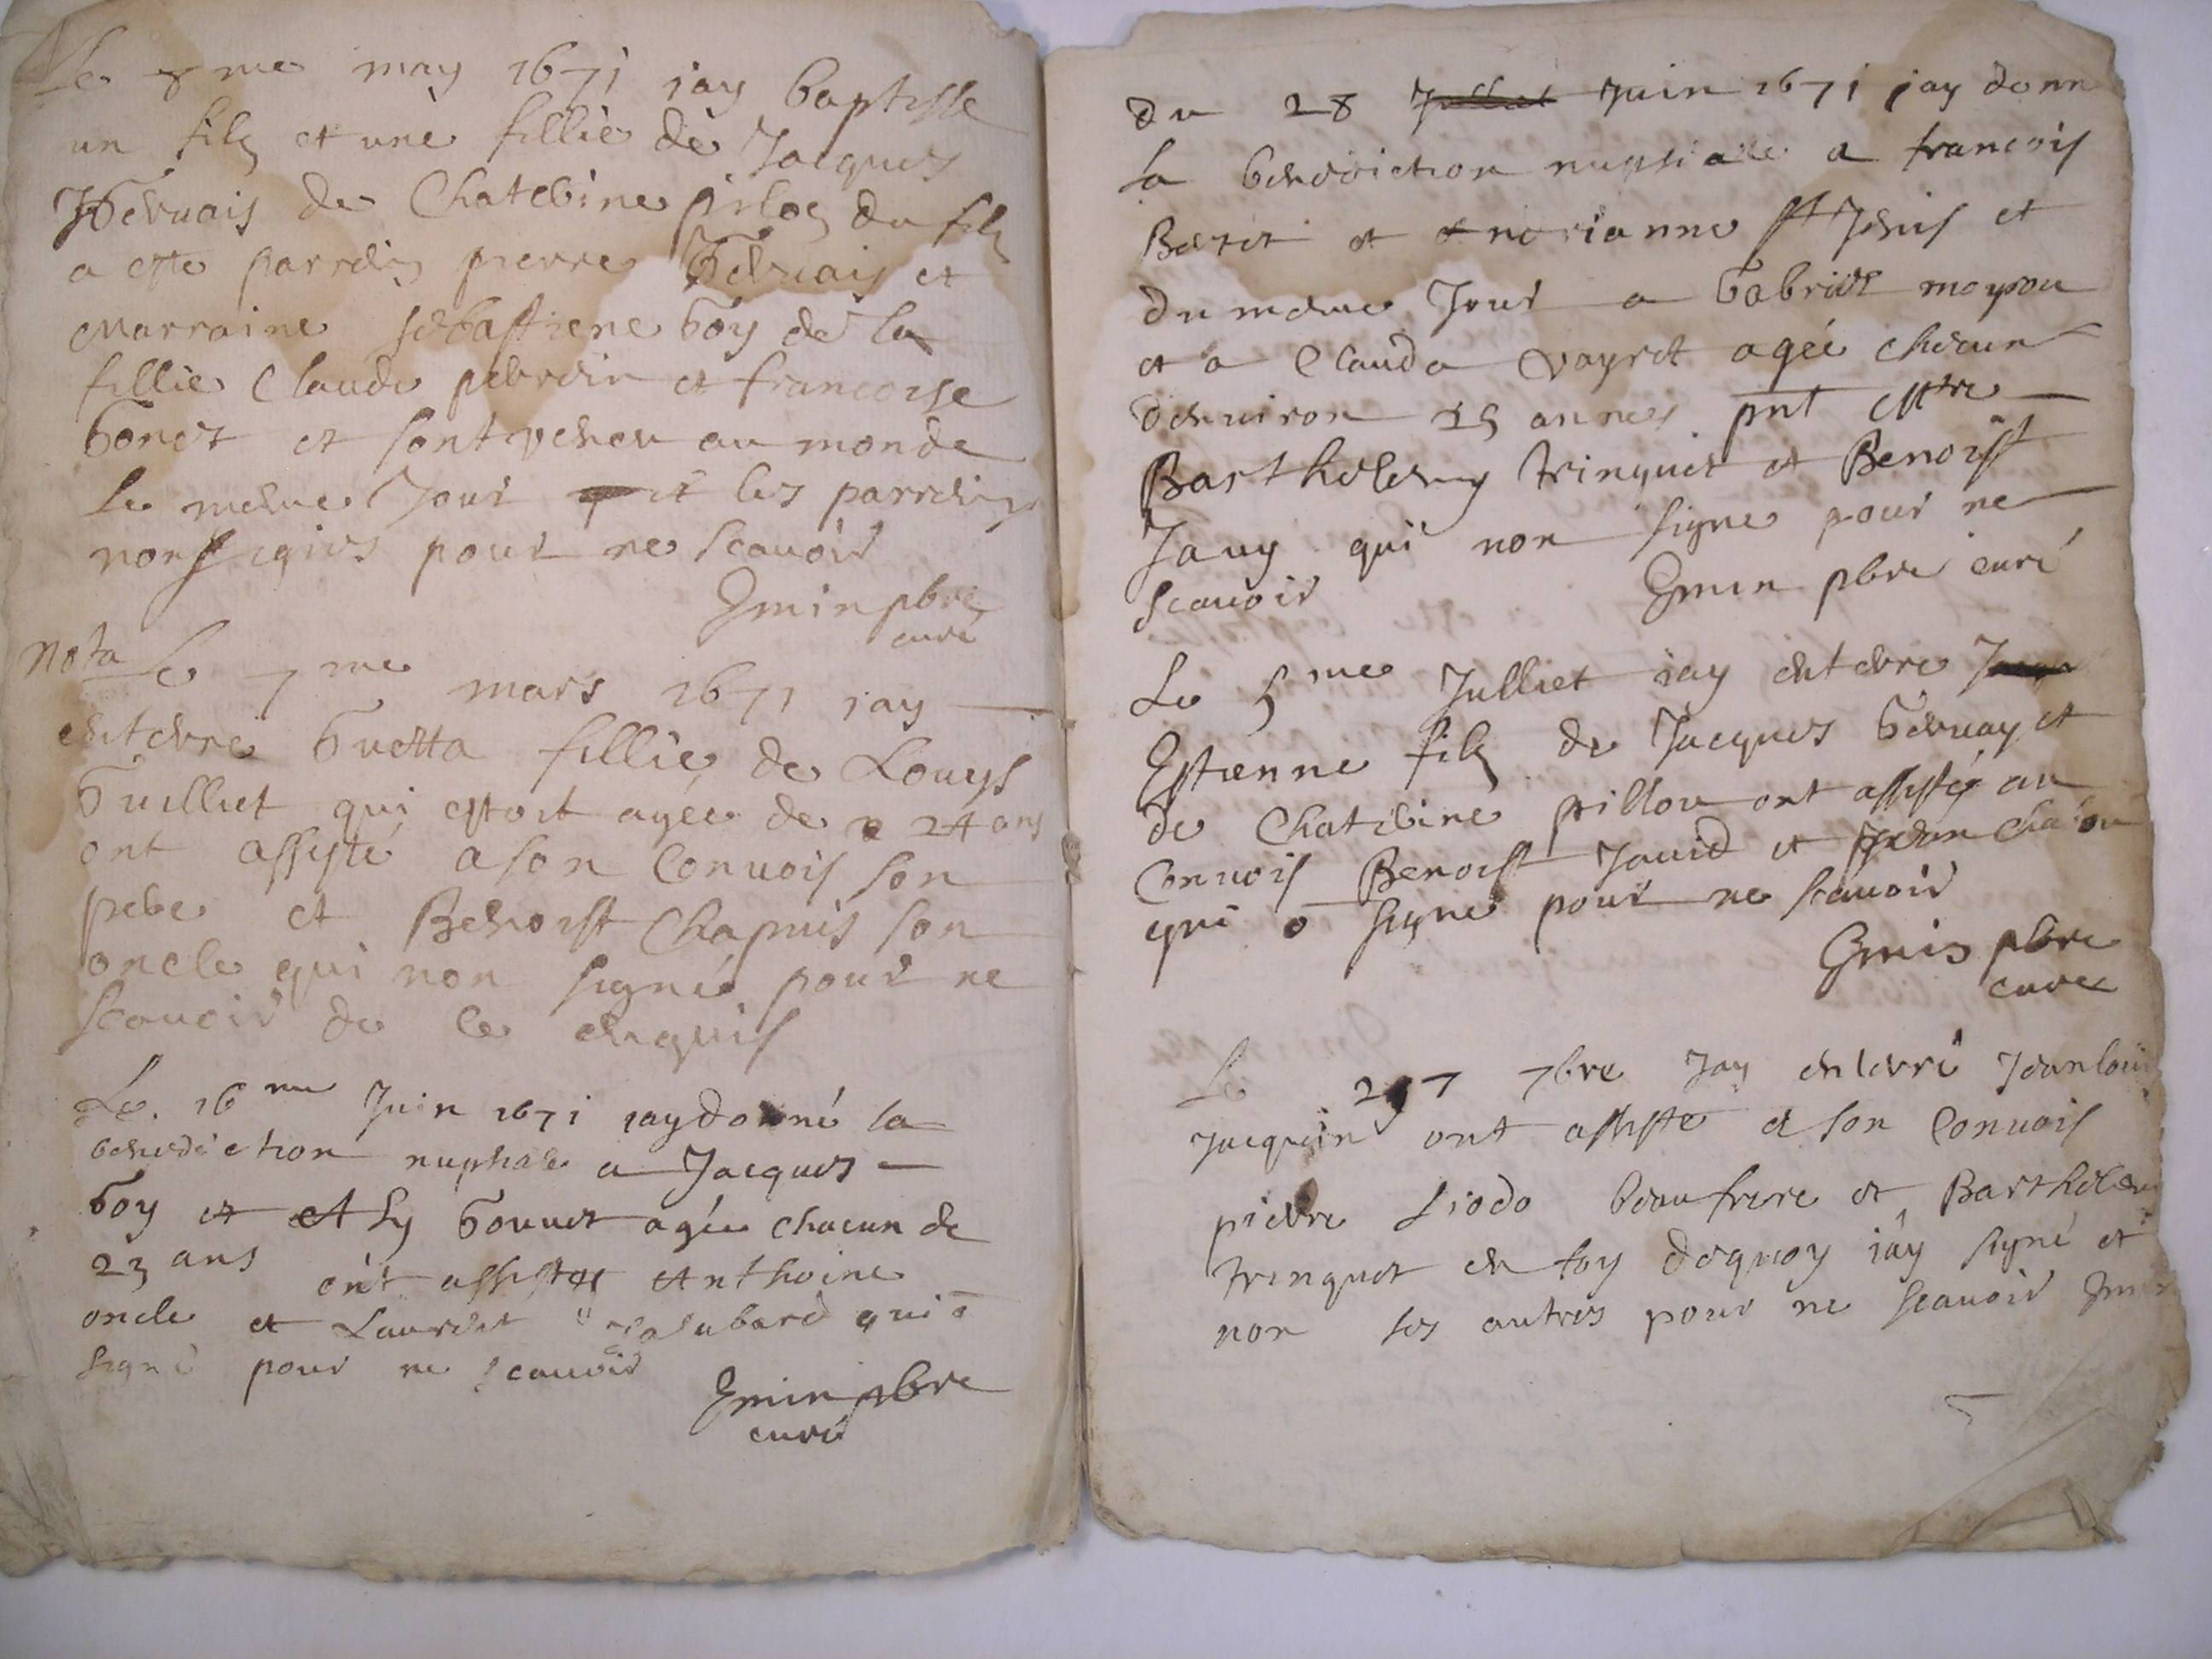 Le 8me may 1671 jay baptisse
un filz et une fillie de Jacques
Gervais de Chaterine pilos du filz
a este parrein pierre Gervais et
Marraine sebastiene Goy de la
fillie Claude perrein et francoise
Gonet et sont veneu au monde
le meme Jour et les parreins
non signes pour ne scavoir
Emin pbre
curé
Nota Le 7me mars 1671 jay
enterre Guetta fillie de Louys
Guilliet qui estoit agée de 24 ans
ont assysté a son Convois son
pere et Benoist Chapuis son
oncle qui non signé pour ne
scavoir de ce enquis
Le 16me Juin 1671 jay donné la
benediction nuptiale a Jacques
Goy et Gonnet agée chacun de
23 ans ont assisté Anthoine
oncle et Laurent qui ō
signé pour ne scavoir
Emin pbre
curé
du 28 Juin 1671 jay donn
la benediction nuptiale a francois
et
du meme Jour a Gabriel moyrou
et a Clauda Vayret agée chacun
denviron 25 annes pnt estre
Barthelemy trinquet et Benoist
Jauy qui non signe pour ne
scavoir Emin pbre curé
Le 5me Julliet jay enterre
Estienne filz de Jacques Gervay et
de Chaterine pillou ont assisté au
Convois Benoist Jauid et Jean
qui ō signe pour ne scavoir
Emin pbre
curé
Le 27 7bre Jay enterré Jean loui
Jacquin ont assisté a son Convois
pierre Liodo beaufrere et Barthelem
trinquet en foy dequoy jay signé et
non les autres pour ne scavoir Emin